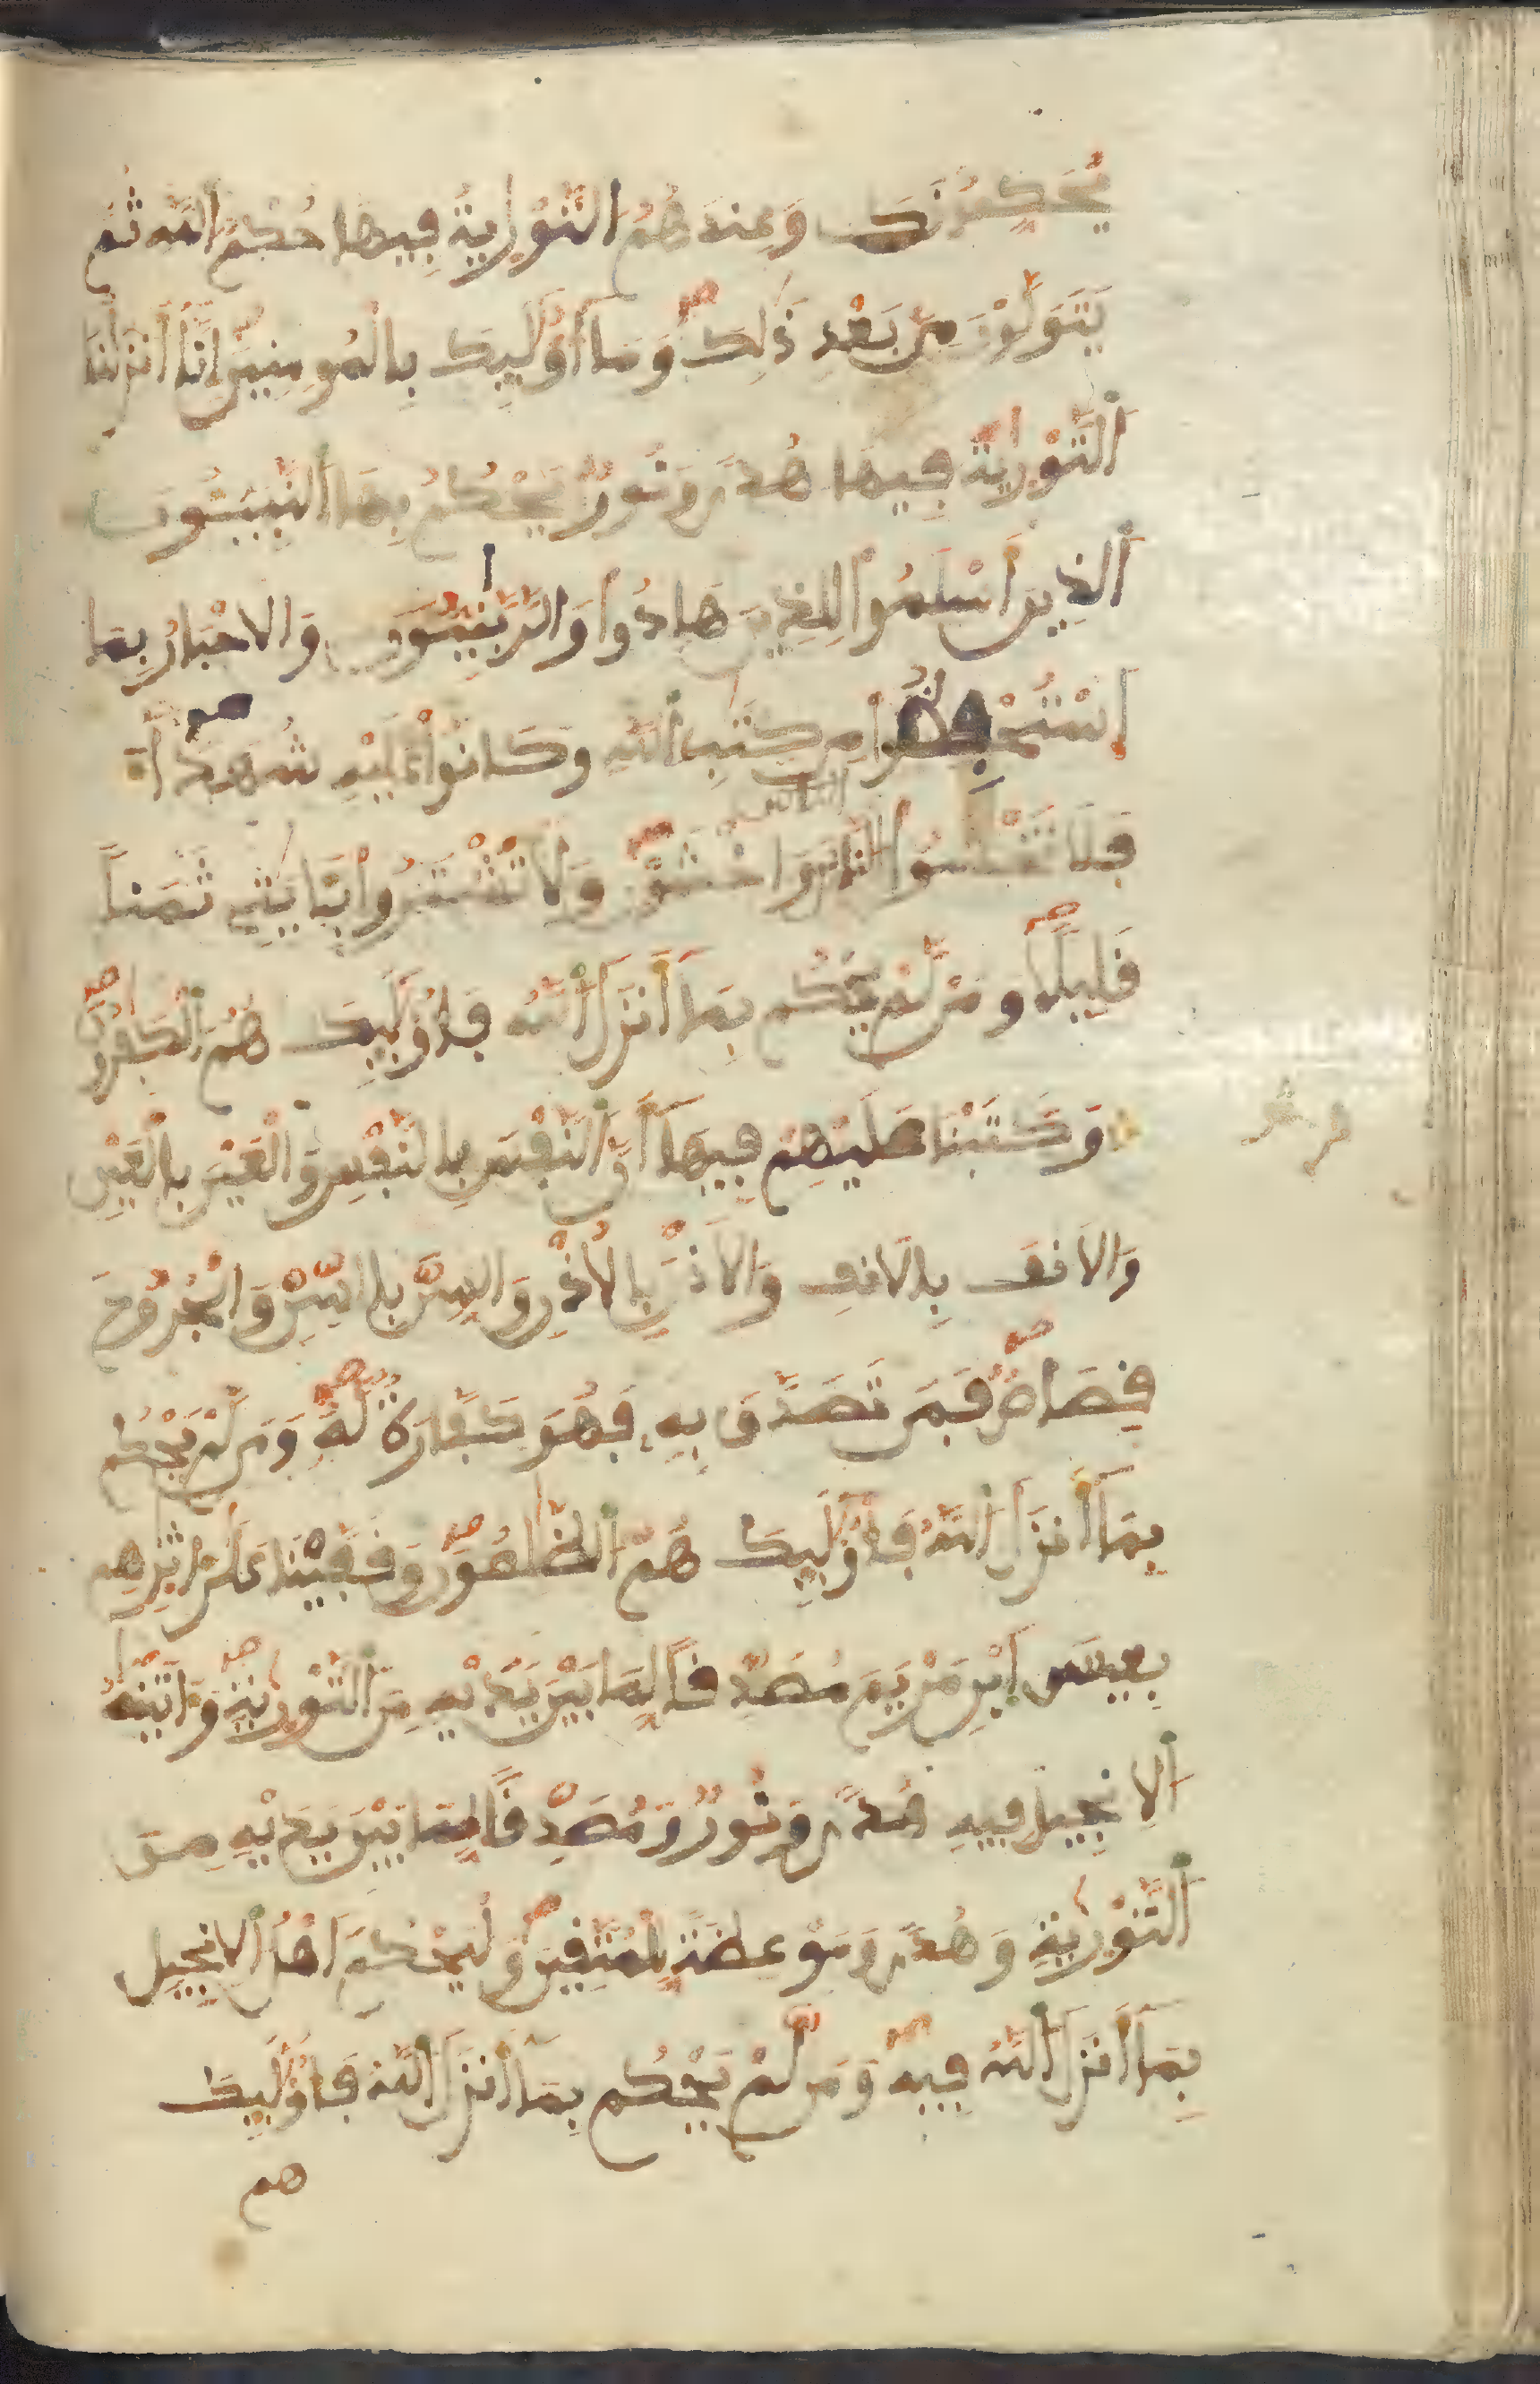 يُحَكِّمُونَكَ وَعِندَهُمُ التَّوْرٰيةُ فِيهَا حُكْمُ اللَّهِ ثُمَّ
يَتَوَلَّوْنَ مِنۢ بَعْدِ ذَٰلِكَ وَمَا أُوْلَٰئِكَ بِالْمُومِنِينَ إِنَّا أَنزَلْنَا
اَلتَّوْرٰيةَ فِيهَا هُدًى وَنُورٌ يَحْكُمُ بِهَا اَلنَّبِيٓـُٔونَ
اَلذِينَ أَسْلَمُوا لِلذِينَ هَادُوا وَالرَّبَّٰنِيُّونَ وَالَاحْبَارُ بِمَا
اسْتُحْفِظُوا مِن كِتَٰبِ اللَّهِ وَكَانُوا عَلَيْهِ شُهَدَآءَ
فَلَا تَخْشَوُا النَّاسَ وَاخْشَوْنِ وَلَا تَشْتَرُوا بِـَٔايَٰتِے ثَمَناً
قَلِيلًا وَمَن لَّمْ يَحْكُم بِمَا أَنزَلَ اَللَّهُ فَأُوْلَٰئِكَ هُمُ اَلْكَٰفِرُونَ
وَكَتَبْنَا عَلَيْهِمْ فِيهَا أَنَّ اَلنَّفْسَ بِالنَّفْسِ وَالْعَيْنَ بِالْعَيْنِ
وَالَانفَ بِالَانفِ وَالُاذْنَ بِالُاذْنِ وَالسِّنَّ بِالسِّنِّ وَالْجُرُوحَ
قِصَاصٌ فَمَن تَصَدَّقَ بِهِ فَهُوَ كَفَّارَةٌ لَّهُ وَمَن لَّمْ يَحْكُم
بِمَا أَنزَلَ اَللَّهُ فَأُوْلَٰئِكَ هُمُ اَلظَّٰلِمُونَ وَقَفَّيْنَا عَلَى ءَاثَٰرِهِم
بِعِيسَى اَبْنِ مَرْيَمَ مُصَدِّقًا لِّمَا بَيْنَ يَدَيْهِ مِنَ اَلتَّوْرٰيةِ وَءَاتَيْنَٰهُ
اَلِانجِيلَ فِيهِ هُدًى وَنُورٌ وَمُصَدِّقًا لِّمَا بَيْنَ يَدَيْهِ مِنَ
اَلتَّوْرٰيةِ وَهُدًى وَمَوْعِظَةً لِّلْمُتَّقِينَ وَلْيَحْكُمَ أَهْلُ اَلِانجِيلِ
بِمَا أَنزَلَ اَللَّهُ فِيهِ وَمَن لَّمْ يَحْكُم بِمَا أَنزَلَ اَللَّهُ فَأُوْلَٰئِكَ
هم